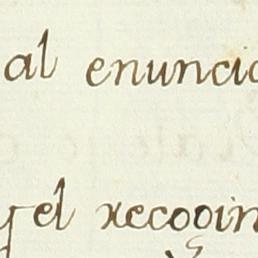 al enuncia
y el recogin